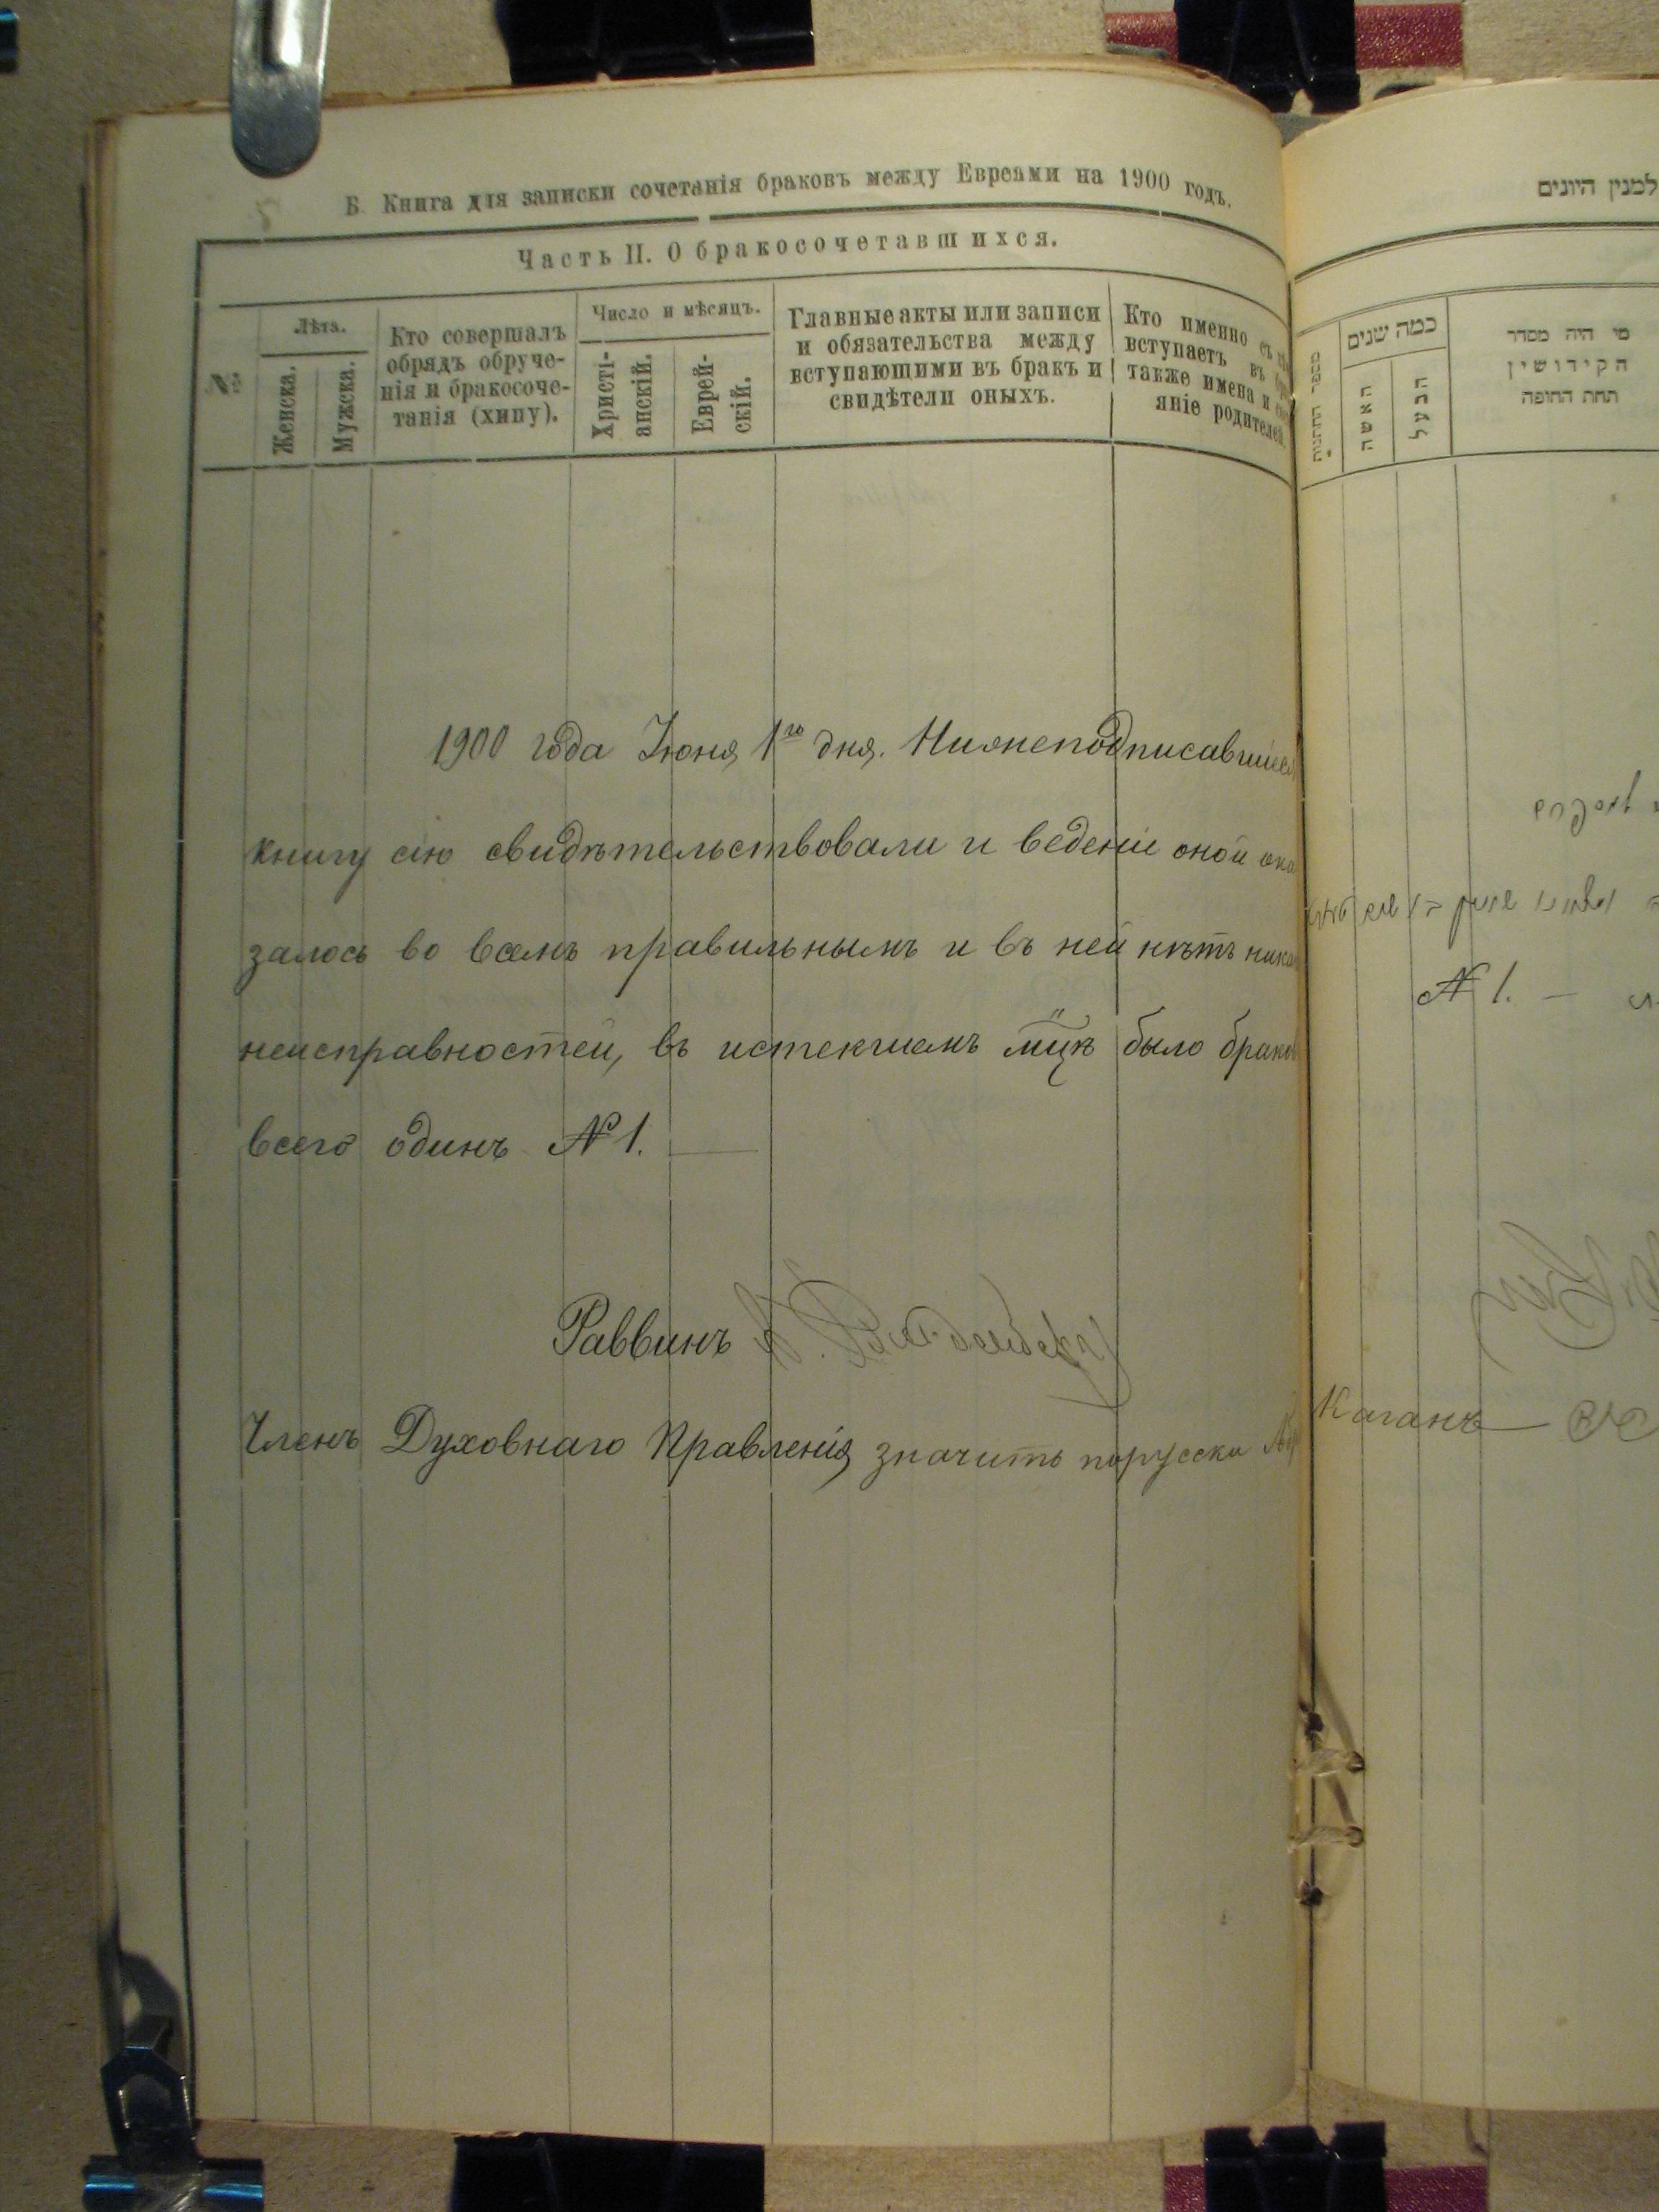 Б. Книга для записки сочетанія браковъ между Евреями на 1900 годъ.
Часть II. О бракосочетавшихся.
№
Лѣта.
Женска.
Мужска.
Кто совершалъ
обрядъ обруче-
нія и бракосоче-
танія (хипу).
Число и мѣсяцъ.
Христі-
анскій.
Еврей-
скій.
Главные акты или записи
и обязательства между
вступающими въ бракъ и
свидѣтели оныхъ.
Кто именно съ
вступаетъ въ
также имена и
яніе родителей.
1900 года Іюня 1го дня. Нижеподписавшіеся
книгу сію свидѣтельствовали и веденіе оной ока
залось во всемъ правильнымъ и въ ней нѣтъ ника
неисправностей, въ истекшемъ мцѣ было браков
всего одинъ №1. —
Раввинъ
Членъ Духовнаго Правленія значитъ порусски
למנין היונים
מספר החתונות
כמה שנים
האשה
הבעל
מי היה מסדר
הקידושין
תחת החופה
№ 1. —
Каганъ —